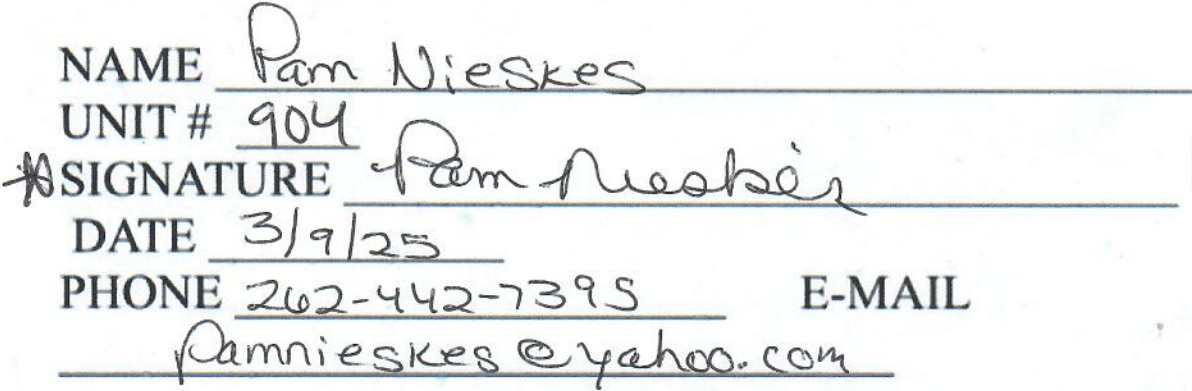 NAME Pam Nieskes
UNIT # 904
*SIGNATURE Pam Nieskes
DATE 3/9/25
PHONE 262-442-7395 E-MAIL
pamnieskes@yahoo.com